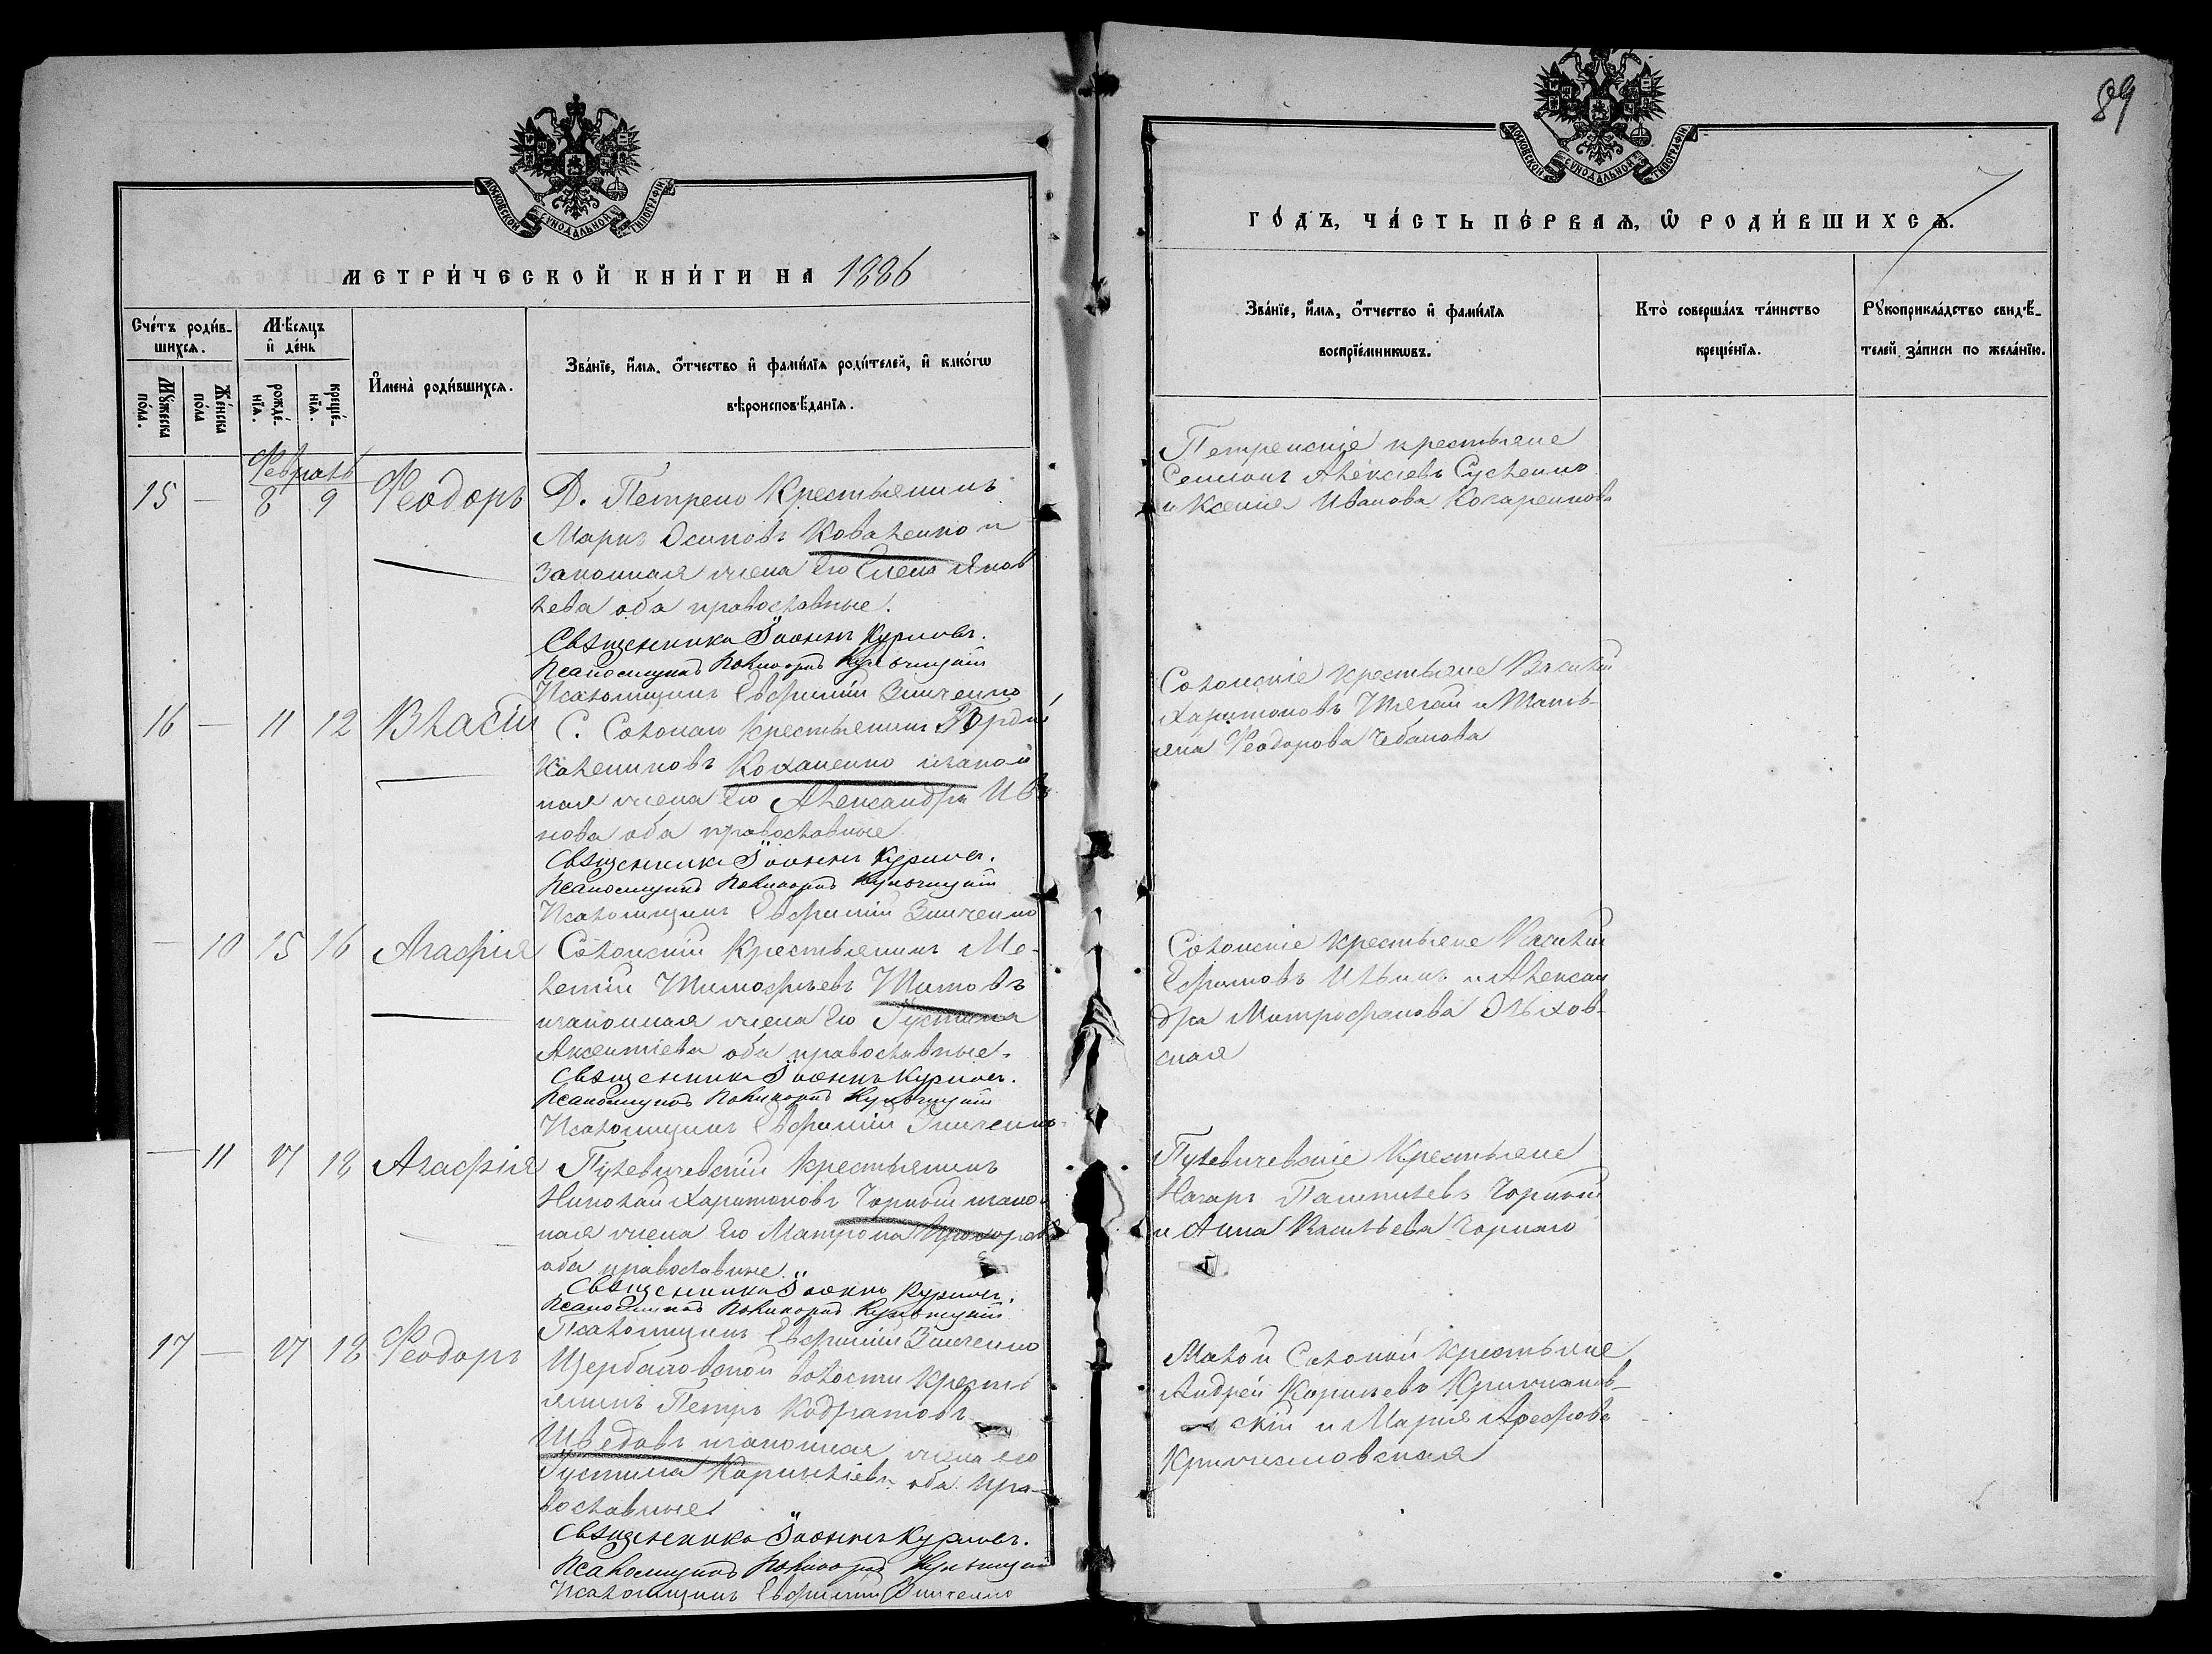 МОСКОВСКОЙ СѴНОДАЛЬНОЙ ТИПОГРАФІИ
МЕТРИ́ЧЕСКОЙ КНИ́ГИ НА 1886
Сче́тъ роди́в-
шихсѧ.
М҆ѣсѧцъ
и҆ де́нь
Мꙋ́жеска
по́ла.
Же́нска
по́ла
рожде́-
нїѧ.
креще́-
нїѧ.
И҆мена̀ роди́вшихсѧ.
Зва́нїе, и҆́мѧ, о҆́тчество и҆ фами́лїѧ роди́телей, и҆ како́гѡ
вѣроисповѣ́данїѧ.
Февраль
15 — 8 9 Феодоръ Д. Петрено Крестьянинъ
Маркъ Осиповъ Коваленко и
законная жена его Елена Яков
лева оба православные.
Священникъ Іоаннъ Куриловъ.
Псаломщикъ
Псаломщикъ Евфимій Зинченко
16 — 11 12 Власій С. Солонаго Крестьянинъ
Калениковъ Коханенко и закон
ная жена его Александра Ива
нова оба православные
Священникъ Іоаннъ Куриловъ.
Псаломщикъ
Псаломщикъ Евфимій Зинченко
— 10 15 16 Агафія Солонскій Крестьянинъ Ме-
летій Тимофѣевъ Титовъ
и законная жена его Іустина
Аксентіева оба православные.
Священникъ Іоаннъ Куриловъ.
Псаломщикъ
Псаломщикъ Евфимій Зинченко
— 11 17 18 Агафія Пулевичевскій Крестьянинъ
Николай Харитоновъ Чорный и закон
ная жена его Матрона Прохорова
оба православные.
Священникъ Іоаннъ Куриловъ.
Псаломщикъ
Псаломщикъ Евфимій Зинченко
17 — 17 18 Феодоръ Щербановской волости Кресть
янинъ Петръ Кодратовъ
Шведовъ и законная жена его
Іустина Корниліева оба пра-
вославные
Священникъ Іоаннъ Куриловъ.
Псаломщикъ
Псаломщикъ Евфимій Зинченко
89
МОСКОВСКОЙ СѴНОДАЛЬНОЙ ТИПОГРАФІИ
ГО́ДЪ, ЧА́СТЬ ПЕ́РВАѦ, Ѡ҆ РОДИ́ВШИХСѦ.
Зва́нїе, и҆́мѧ, о҆́тчество и҆ фами́лїѧ
воспрїе́мникѡвъ.
Кто̀ соверша́лъ та́инство
креще́нїѧ.
Рꙋкоприкла́дство свидѣ́-
телей за́писи по жела́нїю.
Петренскіе крестьяне
Семионъ Алексіевъ Сусленко
и Ксенія Иванова Кочаренкова
Солонскіе крестьяне Василій
Харитоновъ Шегай и Татья-
яна Феодорова Чебанова
Солонскіе крестьяне Василій
Ефимовъ Ильинъ и Алексан
дра Митрофанова Ольхов-
ская
Пулевичевскіе Крестьяне
Назаръ Чорный
и Анна Васильева Чорнаго
Малой Солоной Крестьяне
Андрей Корніевъ Кричманов-
скій и Марія Арефова
Кричмановская